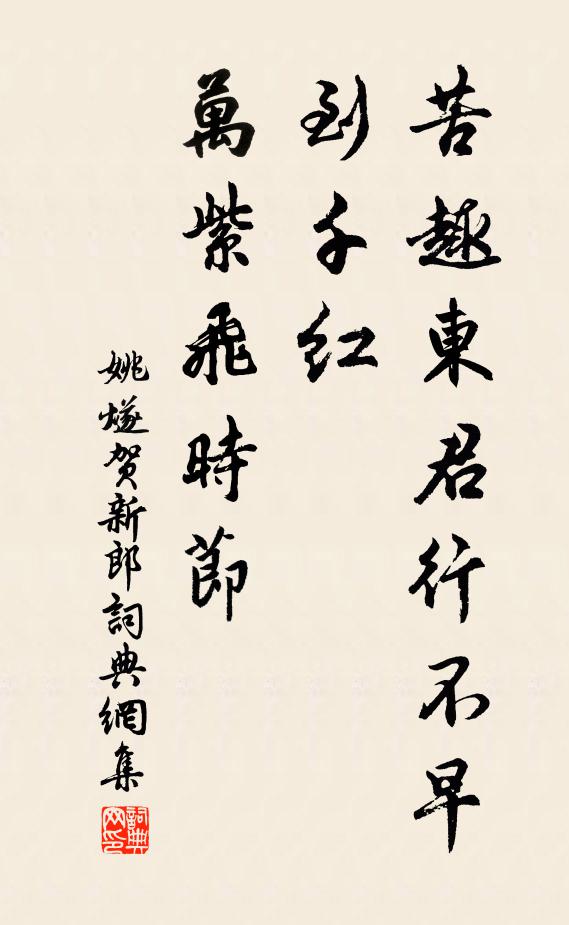 苦趣東君行不早
到千紅
萬紫飛時節
姚燧贺新郎詞典網集
詞典
网印